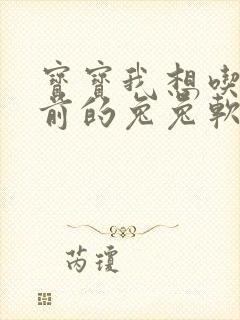 寶寶我想喫
前的兔兔軟
芮瓊